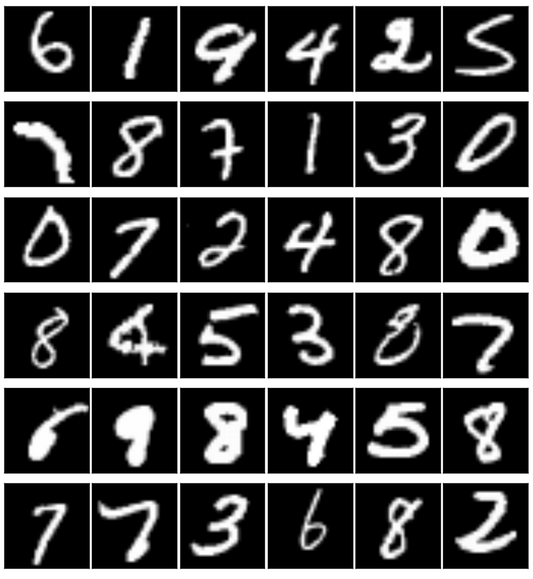 6 1 9 4 2 5
7 8 7 1 3 0
0 7 2 4 8 0
8 4 5 3 8 7
6 9 8 4 5 8
7 7 3 6 8 2